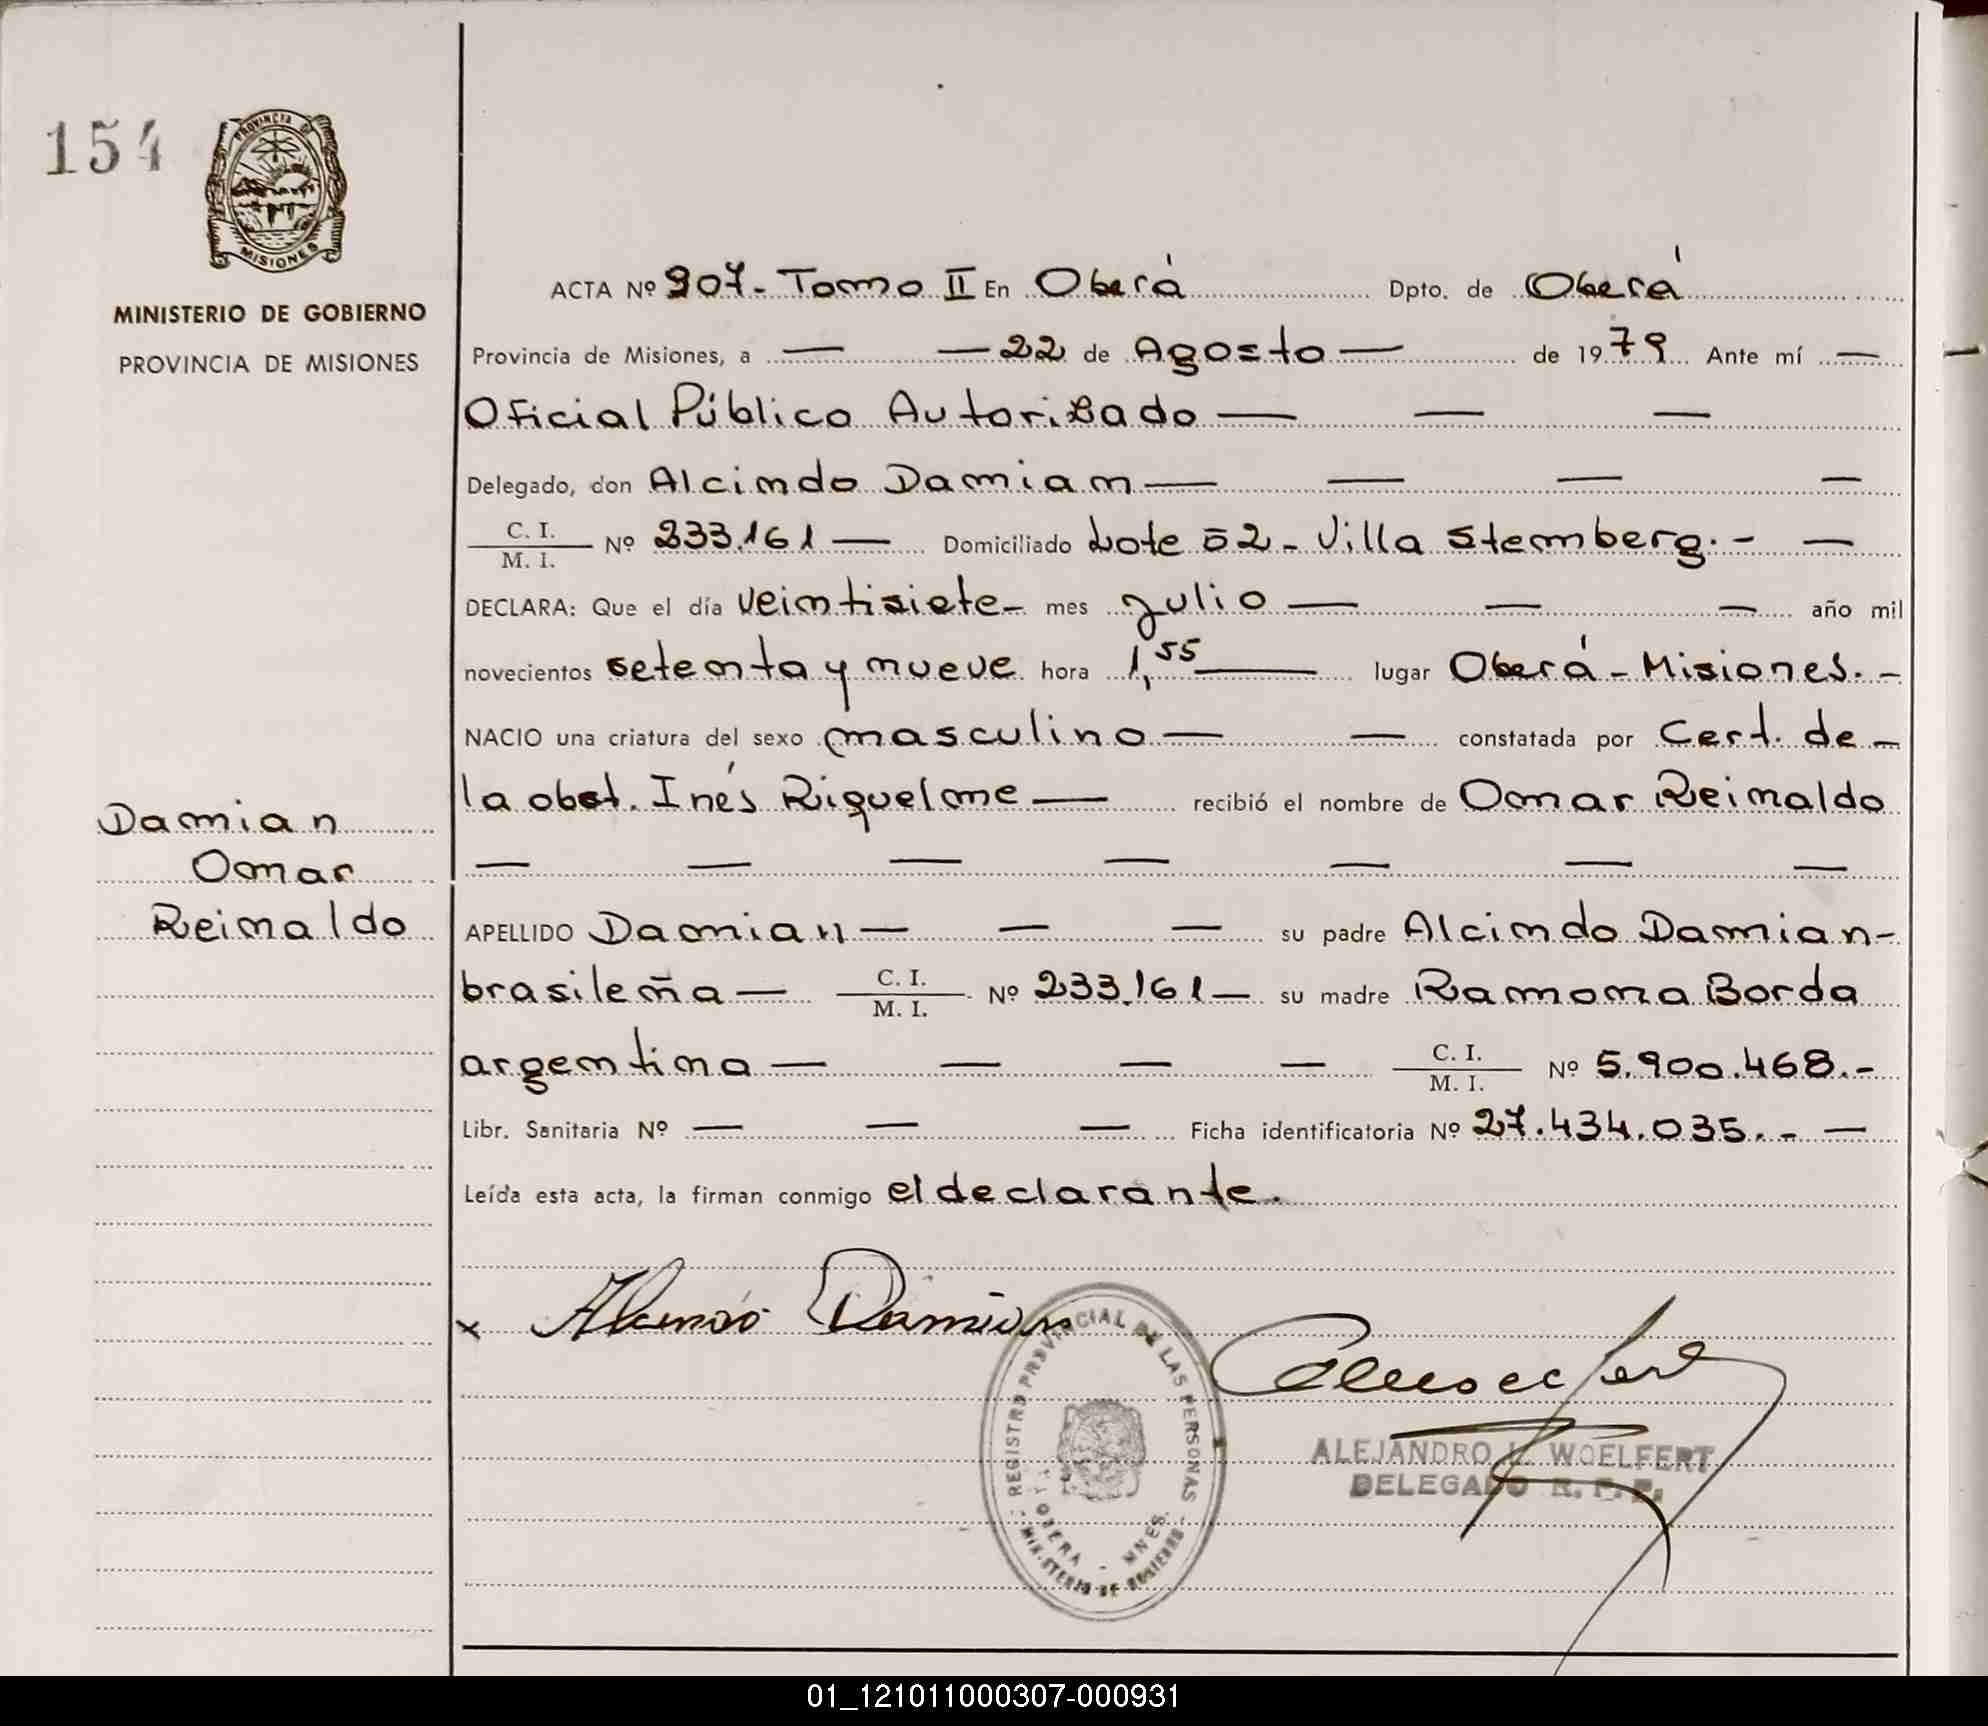 154
PROVINCIA DE
MISIONES
MINISTERIO DE GOBIERNO
PROVINCIA DE MISIONES
ACTA Nº 907- Tomo II En Oberá Dpto. de Oberá
Provincia de Misiones, a — — 22 de Agosto — de 1979 Ante mí —
Oficial Público Autorizado — — —
Delegado, don Alcindo Damian — — — —
C. I.
M. I. Nº 233.161 — Domiciliado Lote 52- Villa Stemberg.- —
DECLARA: Que el día veintisiete- mes julio — — — año mil
novecientos setenta y nueve hora 1,55 — lugar Oberá - Misiones.-
NACIO una criatura del sexo masculino — — constatada por Cert. de -
la obst. Inés Riquelme — recibió el nombre de Omar Reinaldo
— — — — — — —
Damian
Omar
Reinaldo
APELLIDO Damian — — — su padre Alcindo Damian-
brasileña — C. I.
M. I. Nº 233.161 — su madre Ramona Borda
argentina — — — — C. I.
M. I. Nº 5.900.468.-
Libr. Sanitaria Nº — — — Ficha identificatoria Nº 27.434.035.- —
Leída esta acta, la firman conmigo el declarante.
x Alcindo Damian
REGISTRO PROVINCIAL DE LAS PERSONAS
OBERA - MNES.
MINISTERIO DE GOBIERNO
ALEJANDRO L. WOELFERT
DELEGADO R. P. P.
01_121011000307-000931